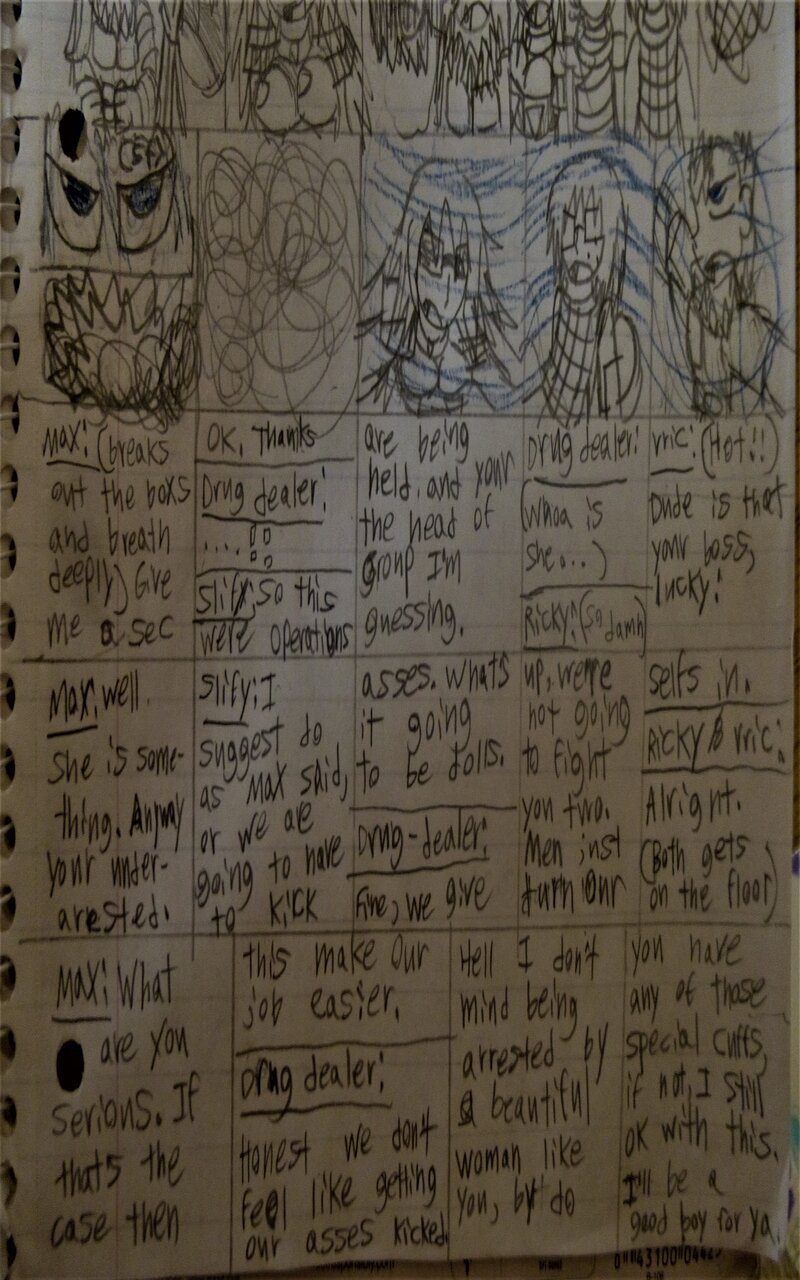 (Sf)
Max: (breaks
out the boxs
and breath
deeply) Give
me a sec
OK, Thanks
Drug dealer:
....!!
Slify: so this
were operations
are being
held. and your
the head of
Group I'm
guessing.
Drug dealer:
(Whoa is
she...)
Ricky: (So damn)
vric: (Hot!!)
Dude is that
your boss,
lucky!
Max: well
she is some-
thing. Anyway
your under-
arested.
Slify: I
suggest do
as Max said,
or we are
going to have
to kick
asses. whats
it going
to be dolls.
Drug-dealer:
Fine, we give
up, we're
not going
to fight
you two.
Men just
turn our
selfs in.
Ricky & vric:
Alright.
(Both gets
on the floor)
Max: What
are you
serious. If
thats the
case then
this make our
job easier.
Drug dealer:
Honest we don't
feel like getting
our asses kicked.
Hell I don't
mind being
arrested by
a beautiful
woman like
you, by do
you have
any of those
special cuffs,
if not, I still
ok with this.
I'll be a
good boy for ya.